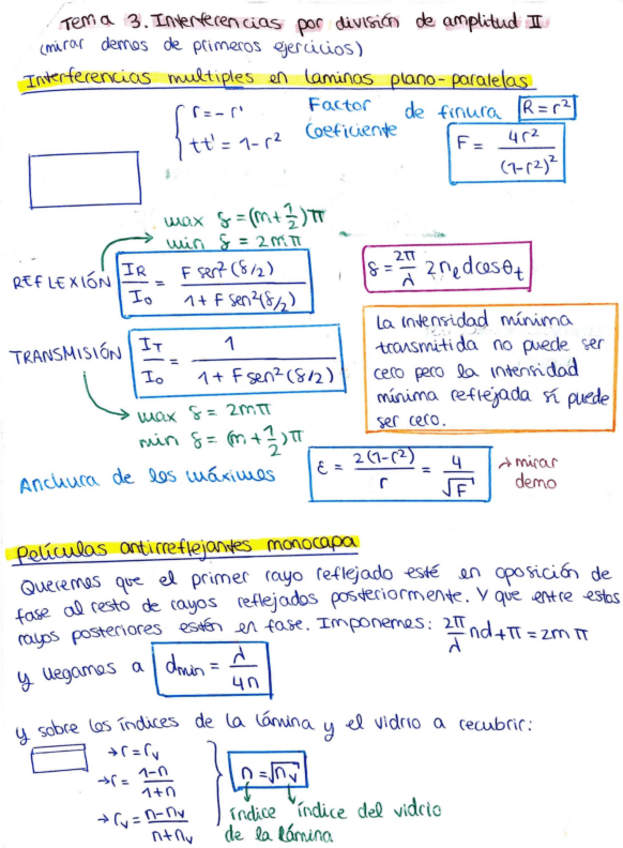 Tema 3. Interferencias por división de amplitud II
(mirar demos de primeros ejercicios)
Interferencias multiples en laminas plano-paralelas
{ r = - r'
tt' = 1 - r²
Factor de finura R = r²
Coeficiente
F = 4r² / (1-r²)²
max δ = (m + 1/2) π
min δ = 2mπ
REFLEXIÓN I_R / I_0 = F sen²(δ/2) / 1 + F sen²(δ/2)
δ = 2π/λ 2 n_e d cosθ_t
TRANSMISIÓN I_T / I_0 = 1 / 1 + F sen²(δ/2)
La intensidad mínima
transmitida no puede ser
cero pero la intensidad
mínima reflejada sí puede
ser cero.
max δ = 2mπ
min δ = (m + 1/2) π
Anchura de los máximos
ε = 2(1-r²) / r = 4 / √F
→ mirar
demo
Películas antirreflejantes monocapa
Queremos que el primer rayo reflejado esté en oposición de
fase al resto de rayos reflejados posteriormente. Y que entre estos
rayos posteriores estén en fase. Imponemos: 2π/λ nd + π = 2mπ
y llegamos a d_min = λ / 4n
y sobre los índices de la lámina y el vidrio a recubrir:
→ r = r_v
→ r = 1-n / 1+n
→ r_v = n-n_v / n+n_v
n = √n_v
índice índice del vidrio
de la lámina